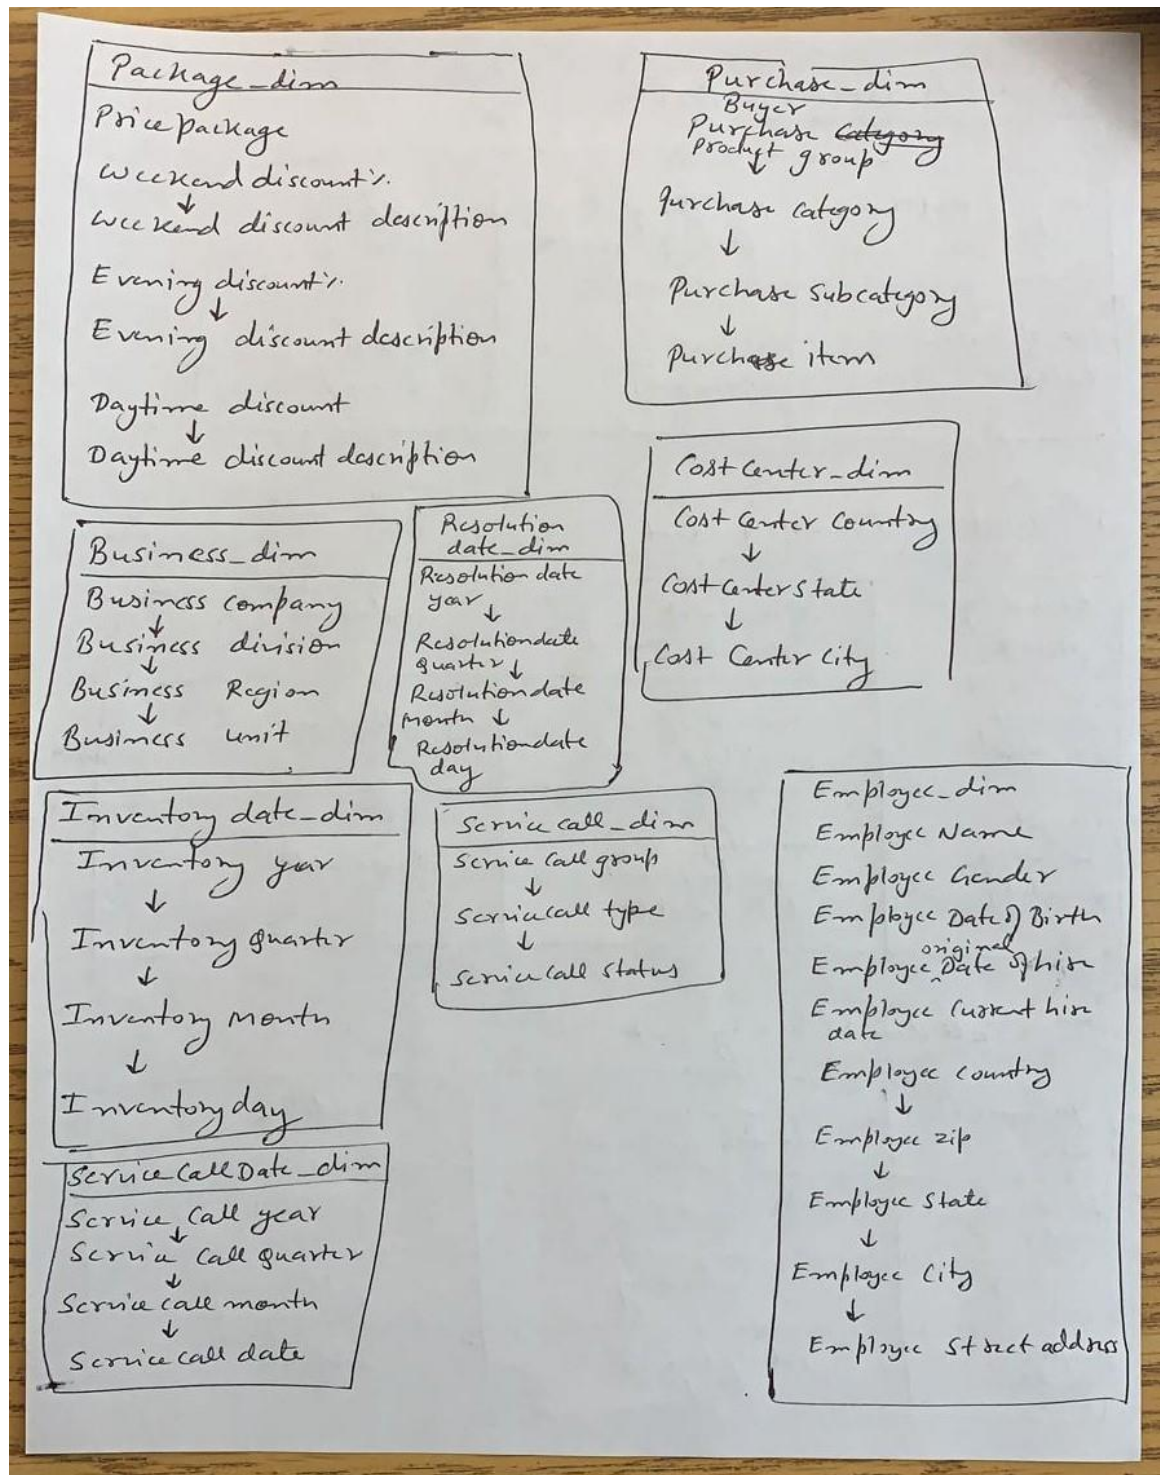 Package_dim
Price package
Weekend discount%
↓
Weekend discount description
Evening discount%
↓
Evening discount description
Daytime discount
↓
Daytime discount description
Purchase_dim
Buyer
Purchase Category
Product group
↓
Purchase Category
↓
Purchase Subcategory
↓
Purchase item
Cost Center_dim
Cost Center Country
↓
Cost Center State
↓
Cost Center City
Business_dim
Business company
↓
Business division
↓
Business Region
↓
Business unit
Resolution
date_dim
Resolution date
year ↓
Resolution date
quarter ↓
Resolution date
Month ↓
Resolution date
day
Inventory date_dim
Inventory year
↓
Inventory quarter
↓
Inventory Month
↓
Inventory day
Service Call_dim
Service Call group
↓
Service Call type
↓
Service Call Status
Employee_dim
Employee Name
Employee Gender
Employee Date of Birth
Employee original Date of hire
Employee Current hire
date
Employee Country
↓
Employee zip
↓
Employee State
↓
Employee City
↓
Employee Street address
Service Call Date_dim
Service Call year
↓
Service Call Quarter
↓
Service Call month
↓
Service call date